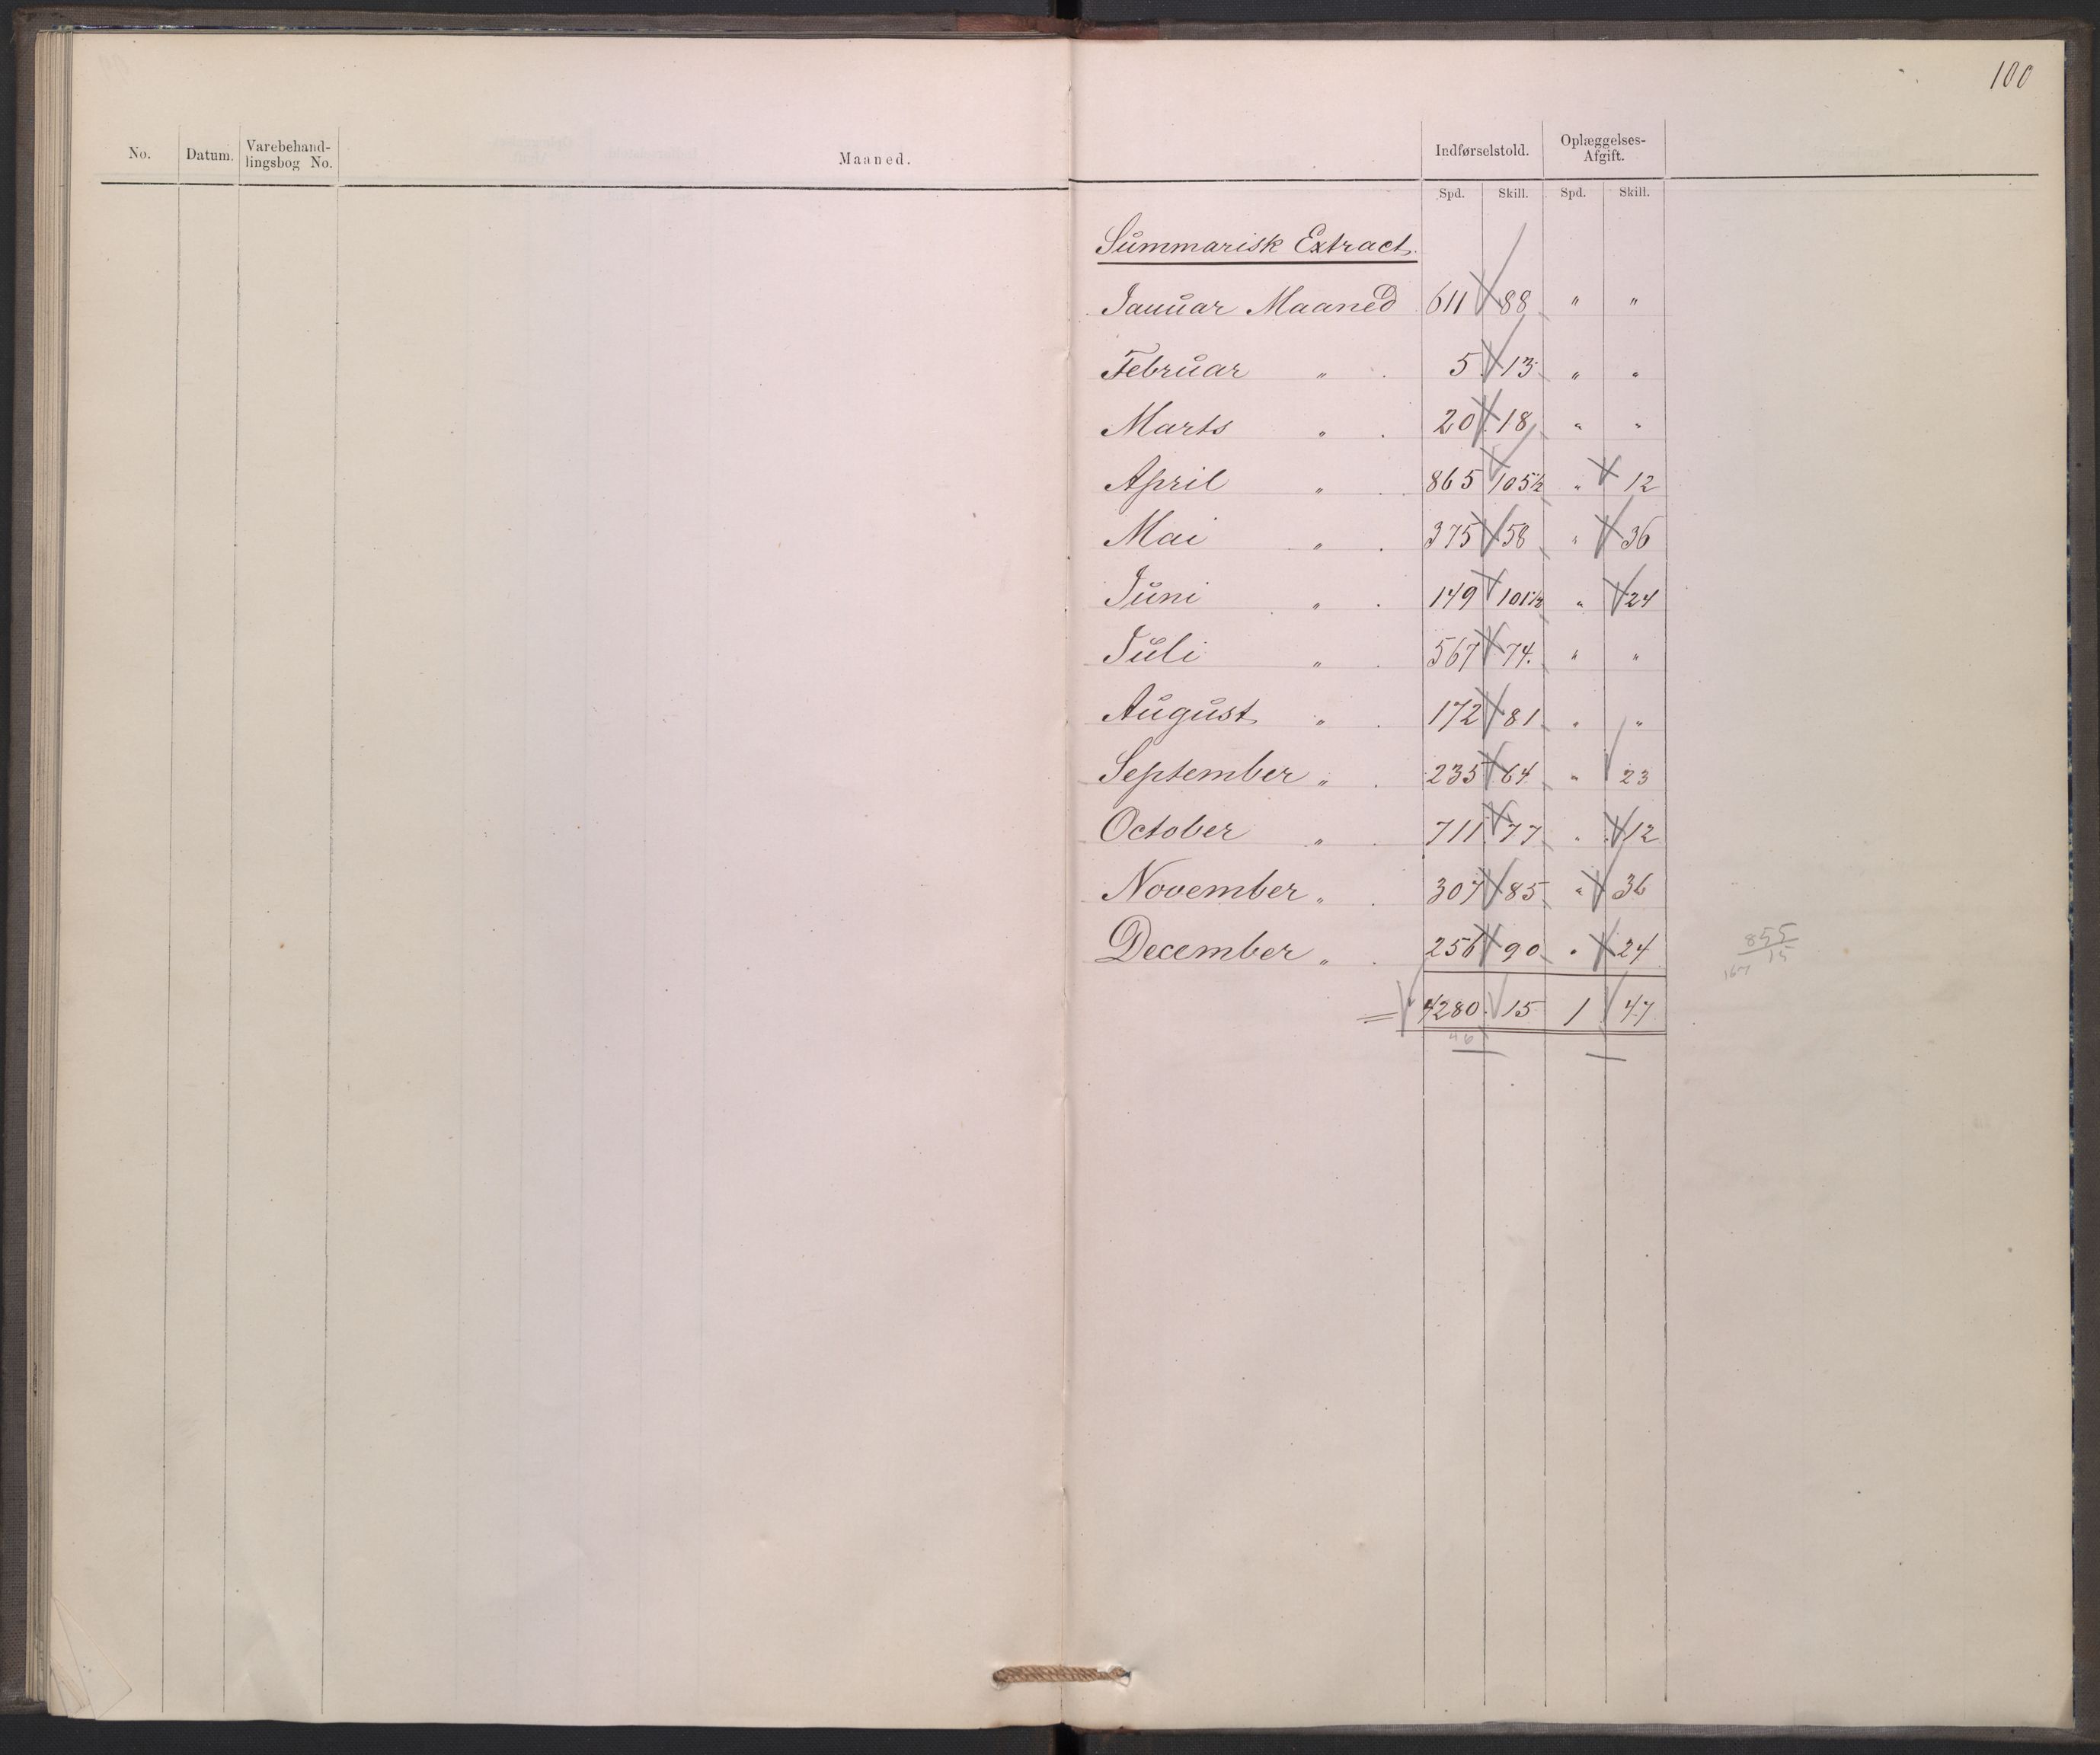 100
No. Datum. Varebehand-
lingsbog No. Maaned. Indførselstold. Oplæggelses-
Afgift.
Spd. Skill. Spd. Skill.
Summarisk Extract.
Januar Maaned 611 88 " "
Februar " . 5 13 " "
Marts " . 20 18 " "
April " . 865 105½ " 12
Mai " . 375 58 " 36
Juni " . 149 101½ " 24
Juli " . 567 74. " "
August " . 172 81 " "
September " . 235 64 " 23
October " . 711 77 " 12
November " . 307 85 " 36
December " . 256 90 " 24
855
15
= 4280 15 1 47
46